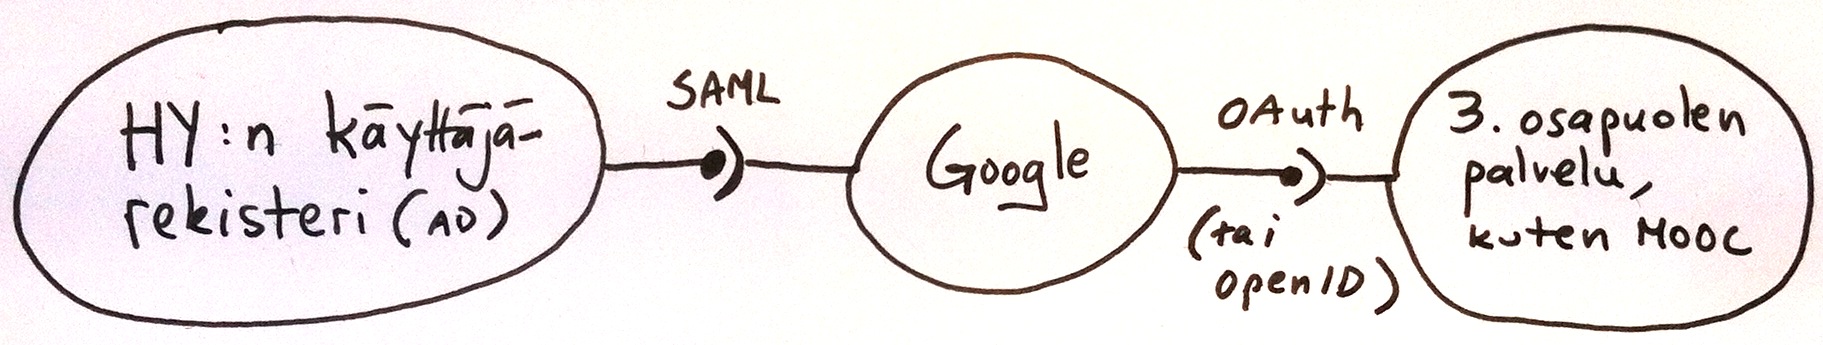 HY:n käyttäjä-
rekisteri (AD)
SAML
Google
OAuth
(tai
openID)
3. osapuolen
palvelu,
kuten MOOC